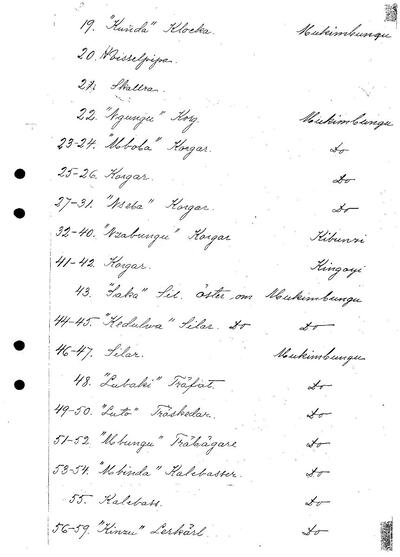 19. "Kunda" Klocka. Mukimbungu
20. Visselpipa.
21. Skallra.
22. "Ngungu" Korg. Mukimbungu
23-24. "Mbola" Korgar. Do
25-26. Korgar. Do
27-31. "Nseba" Korgar. Do
32-40. "Nzabungu" Korgar Kibunzi
41-42. Korgar. Kingoyi
43. "Saka" Sil. öster om Mukimbungu
44-45. "Kedulva" Silar. Do Do
46-47. Silar. Mukimbungu
48. "Lubaki" Träfat. Do
49-50. "Luto" Träskedar. Do
51-52. "Mbungu" Träbägare Do
53-54. "Mbinda" Kalebasser. Do
55. Kalebass. Do
56-59. "Kinzu" Lerkärl. Do